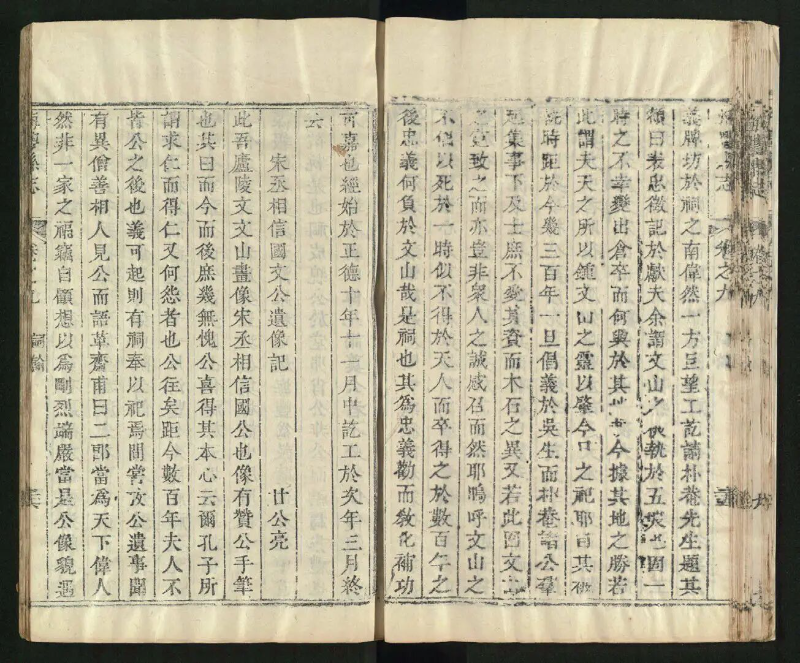 縣志 卷之九
義牌坊於祠之南偉然一方巨望工訖請朴菴先生題其
額曰表忠徵記於獻夫余謂文山之被執於五坡也固一
時之不幸變出倉卒而何與於其地今據其地之勝若
此謂夫天之所以鍾文山之靈以肇今日之祀耶自其被
執時距於今幾三百年一旦倡義於吳生而朴菴諸公羣
集事下及士庶不愛其資而木石之異又若此固文山
之克致之而亦豈非衆人之誠感召而然耶嗚呼文山之
不倡以死於一時似不得於天人而卒得之於數百年之
後忠義何負於文山哉是祠也其為忠義勸而敎化補功
可嘉也經始於正德十年十一月中訖工於次年三月終
云
宋丞相信國文公遺像記 甘公亮
此吾廬陵文文山畫像宋丞相信國公也像有贊公手筆
也其曰而今而後庶幾無愧公喜得其本心云爾孔子所
謂求仁而得仁又何怨者也公往矣距今數百年夫人不
皆公之後也義可起則有祠奉以祀焉間嘗攷公遺事聞
有異僧善相人見公而語革齋甫曰二郎當為天下偉人
然非一家之福竊自顧想以為剛烈端嚴當是公像貌遇
縣志 卷之九 詞翰